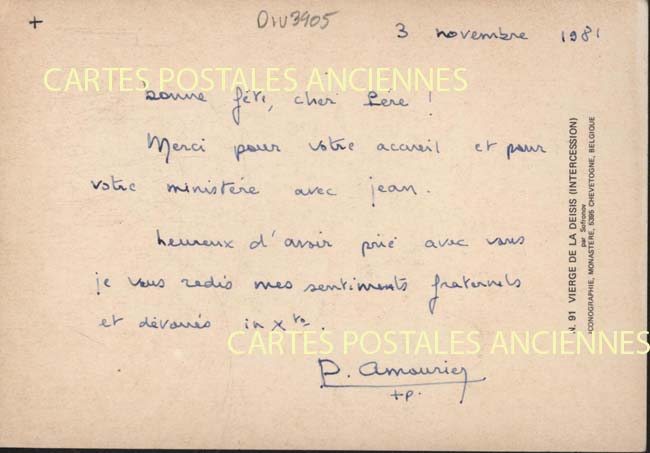 +
DIV3905
3 novembre 1981
CARTES POSTALES ANCIENNES
bonne fête, cher Père !
Merci pour votre accueil et pour
votre ministère avec jean.
heureux d'avoir prié avec vous
je vous redis mes sentiments fraternels
et dévoués in X to.
CARTES POSTALES ANCIENNES
P. Amourier
+p.
N. 91 VIERGE DE LA DEISIS (INTERCESSION)
par Sofronov
ICONOGRAPHIE, MONASTERE, 5395 CHEVETOGNE, BELGIQUE